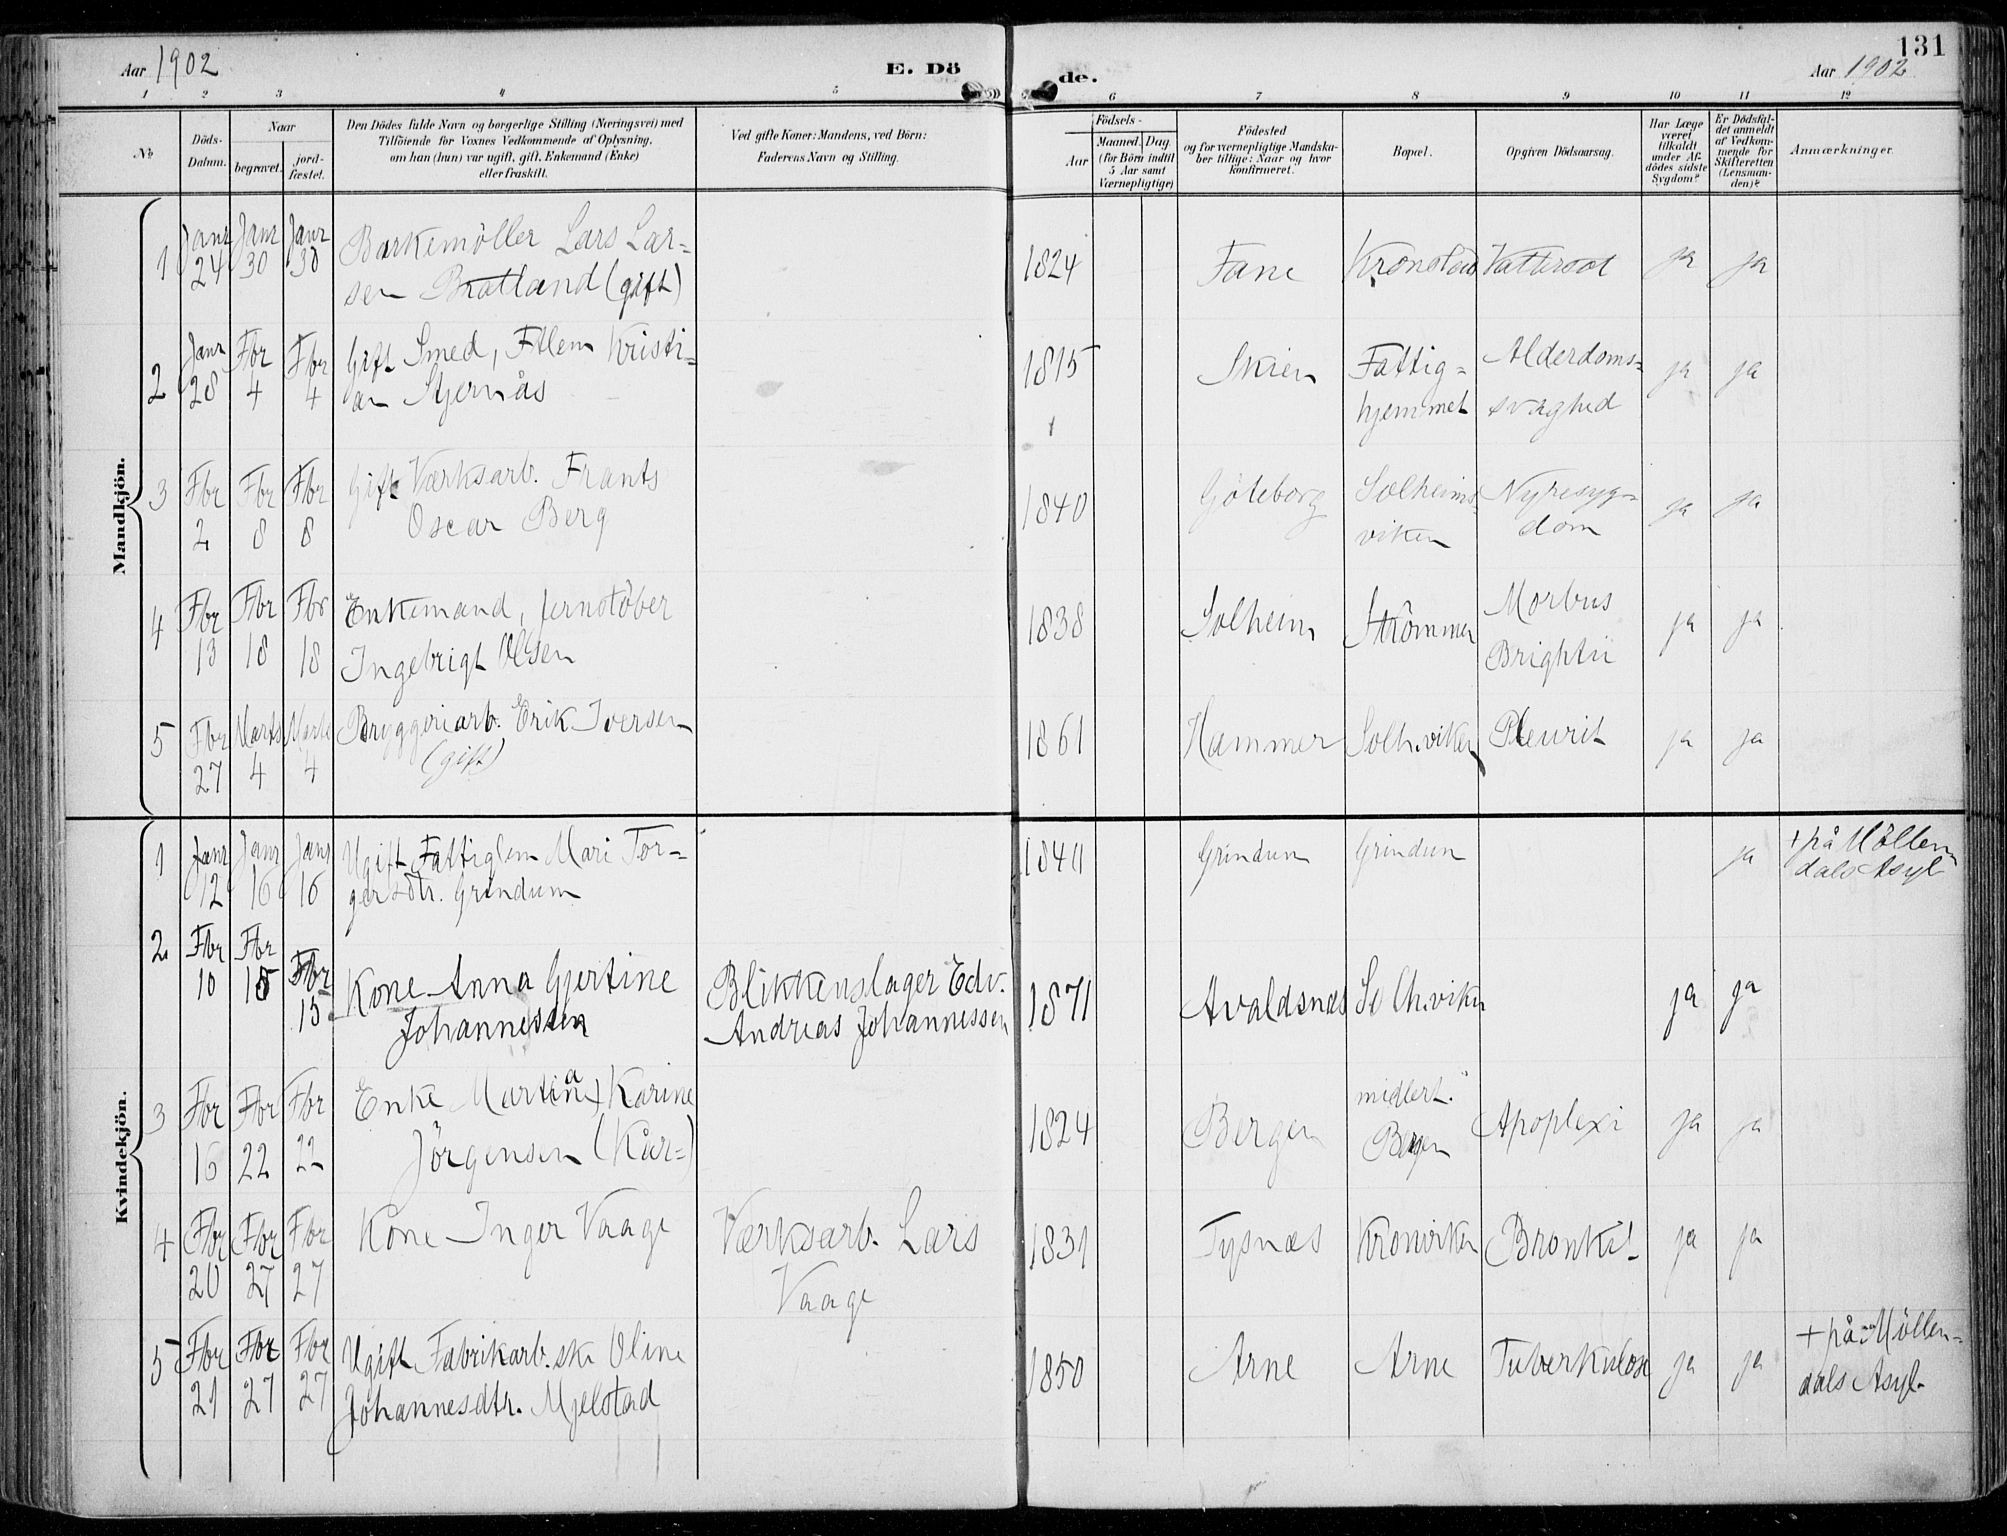 131
Aar 1902 E. Dö de. Aar 1902
1 2 3 4 5 6 7 8 9 10 11 12
No
Döds-
Datum.
Naar
begravet.
jord-
fæstet.
Den Dödes fulde Navn og borgerlige Stilling (Næringsvei) med
Tilföiende for Voxnes Vedkommende af Oplysning,
om han (hun) var ugift, gift, Enkemand (Enke)
eller fraskilt.
Ved gifte Koner: Mandens, ved Börn:
Faderens Navn og Stilling.
Födsels-
Aar
Maaned. Dag.
(for Börn indtil
5 Aar samt
Værnepligtige)
Födested
og for værnepligtige Mandska-
ber tillige: Naar og hvor
konfirmeret.
Bopæl.
Opgiven Dödsaarsag.
Har Læge
været
tilkaldt
under Af-
dödes sidste
Sygdom?
Er Dödsfal-
det anmeldt
af Vedkom-
mende for
Skifteretten
(Lensman-
den)?
Anmærkninger.
Mandkjön.
1 Janr 24 Janr 30 Janr 30 Barkemöller Lars Lar-
sen Bratland (gift) 1824 Fane Kronstad Vattersot ja ja
2 Janr 28 Fbr 4 Fbr 4 Gift Smed, Ftlem Kristi-
an Stjernås 1815 Skien Fattig-
hjemmet Alderdoms-
svaghed ja ja
3 Fbr 2 Fbr 8 Fbr 8 Gift Værksarb. Frants
Oscar Berg 1840 Göteborg Solheims-
viken Nyresyg-
dom ja ja
4 Fbr 13 Fbr 18 Fbr 18 Enkemand, jernstöber
Ingebrigt Olsen 1838 Solheim Strömmen Morbus
Brightii ja ja
5 Fbr 27 Marts 4 Marts 4 Bryggeriarb. Erik Iversen
(gift) 1861 Hammer Solh.viken Pleurit ja ja
Kvindekjön.
1 Janr 12 Janr 16 Janr 16 Ugift Fattiglem Mari Tor-
gersdtr. Grindum 1840 Grindum Grindum ja + på Möllen
dals Asyl
2 Fbr 10 Fbr 15 Fbr 15 Kone Anna Gjertine
Johannessen Blikkenslager Edv.
Andreas Johannessen 1871 Avaldsnæs Solh.viken ja ja
3 Fbr 16 Fbr 22 Fbr 22 Enke Martina Karine
Jörgensen (Kår-) 1824 Bergen midlert.
Bergen Apoplexi ja ja
4 Fbr 20 Fbr 27 Fbr 27 Kone Inger Vaage Værksarb. Lars
Vaage 1831 Tysnæs Kronviken Bronkit ja ja
5 Fbr 21 Fbr 27 Fbr 27 Ugift Fabrikarb.ske Oline
Johannesdtr. Mjelstad 1850 Arne Arne Tuberkulose ja ja + på Möllen-
dals Asyl.